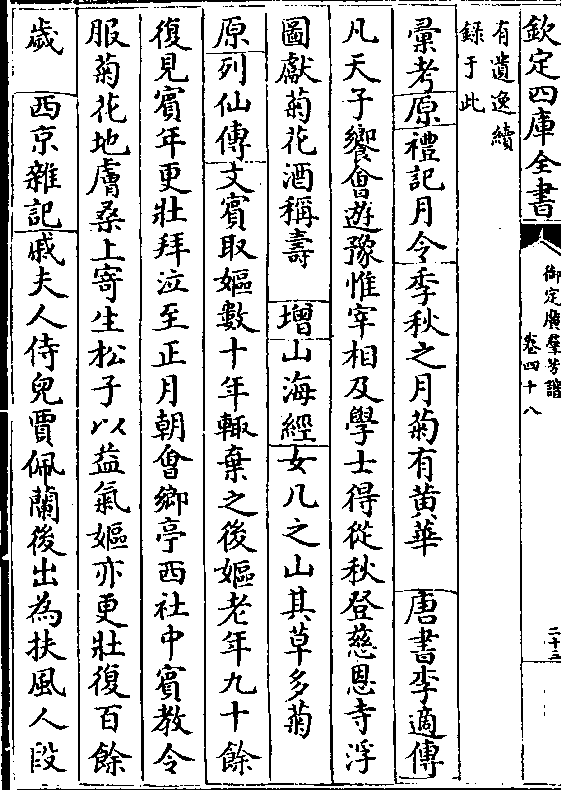 欽定四庫全書
御定廣羣芳譜
卷四十八
二十三
有遺逸續
録于此
彚考原禮記月令季秋之月菊有黄華 唐書李適傳
凡天子饗會遊豫惟宰相及學士得從秋登慈恩寺浮
圖獻菊花酒稱壽 增山海經女几之山其草多菊
原列仙傳文賓取嫗數十年輒棄之後嫗老年九十餘
復見賓年更壯拜泣至正月朝會鄉亭西社中賓教令
服菊花地膚桑上寄生松子以益氣嫗亦更壯復百餘
歲 西京雜記戚夫人侍兒賈佩蘭後出為扶風人段